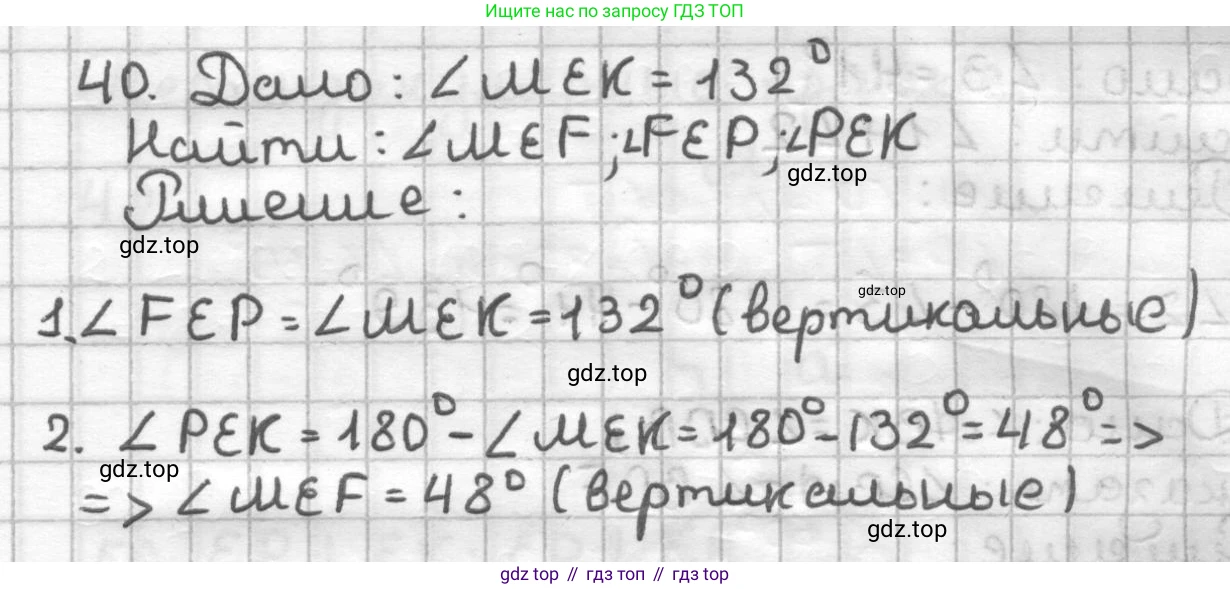 Ищите нас по запросу ГДЗ ТОП
40. Дано: ∠MEK = 132°
Найти: ∠MEF; ∠FEP; ∠PEK
gdz.top
Решение:
gdz.top
gdz.top
1. ∠FEP = ∠MEK = 132° (вертикальные)
gdz.top
2. ∠PEK = 180° - ∠MEK = 180° - 132° = 48° =>
gdz.top
=> ∠MEF = 48° (вертикальные)
gdz.top
gdz top // гдз топ // гдз top